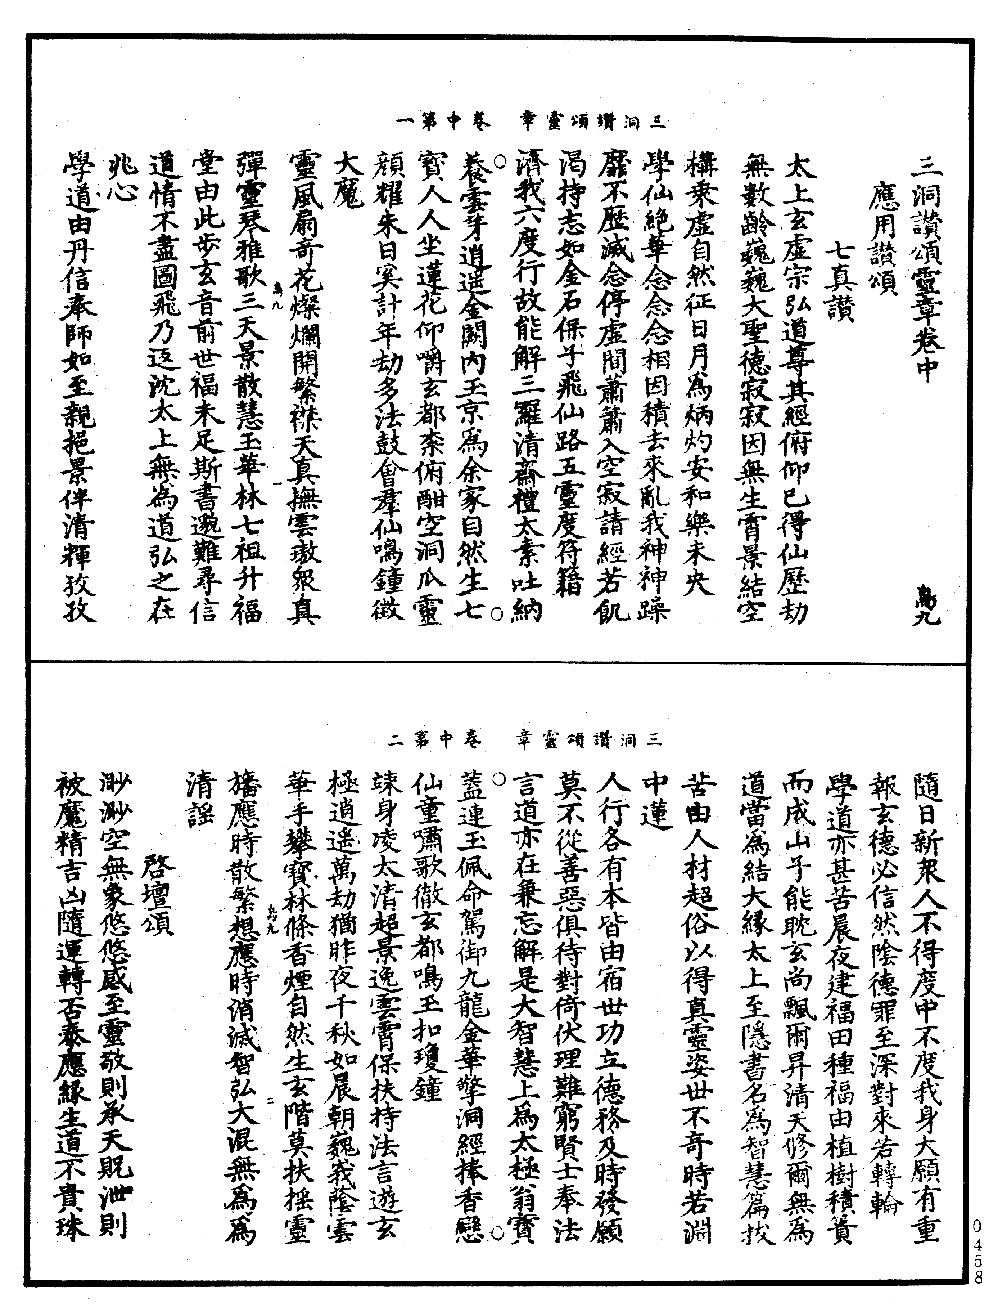 三洞讃頌靈章 卷中第一
三洞讃頌靈章卷中
萬九
應用讃頌
七真讃
太上玄虛宗弘道尊其經俯仰已得仙歷劫
無數齡巍巍大聖德寂寂因無生霄景結空
構乗虛自然征日月為炳灼安和樂未央
學仙絶華念念念相因積去來亂我神神躁
靡不歷滅念停虛閒蕭蕭入空寂請經若飢
渴持志如金石保子飛仙路五靈度符籍
濟我六度行故能解三羅清齋禮太素吐納
養雲芽逍遥金闕内玉京為余家自然生七
寳人人坐蓮花仰嚼玄都柰俯酣空洞瓜靈
顔耀朱日奚計年劫多法鼓會羣仙鳴鐘徴
大魔
靈風扇奇花燦爛開繁襟天真撫雲璈衆真
彈靈琴雅歌三天景散慧玉華林七祖升福
堂由此步玄音前世福未足斯書邈難尋信
道情不盡圖飛乃返沈太上無為道弘之在
兆心
學道由丹信奉師如至親挹景伴清輝孜孜
萬九 一
三洞讃頌靈章 卷中第二
隨日新衆人不得度中不度我身大願有重
報玄德必信然陰德罪至深對來若轉輪
學道亦甚苦晨夜建福田種福由植樹積簣
而成山子能耽玄尚飄爾昇清天修爾無為
道當為結大縁太上至隱書名為智慧篇拔
苦由人材超俗以得真靈姿世不奇時若淵
中蓮
人行各有本皆由宿世功立德務及時發願
莫不從善惡俱待對倚伏理難窮賢士奉法
言道亦在兼忘解是大智慧上為太極翁寳
蓋連玉佩命駕御九龍金華擎洞經捧香戀
仙童嘯歌徹玄都鳴玉扣瓊鐘
竦身凌太清超景逸雲霄保扶持法言遊玄
極逍遥萬劫猶昨夜千秋如晨朝巍峩蔭雲
華手攀寳林條香煙自然生玄階莫扶揺靈
旛應時散繁想應時消滅智弘大混無為為
清謡
萬九 二
啓壇頌
渺渺空無象悠悠感至靈敬則承天貺泄則
被魔精吉凶隨運轉否泰應縁生道不貴珠
0458